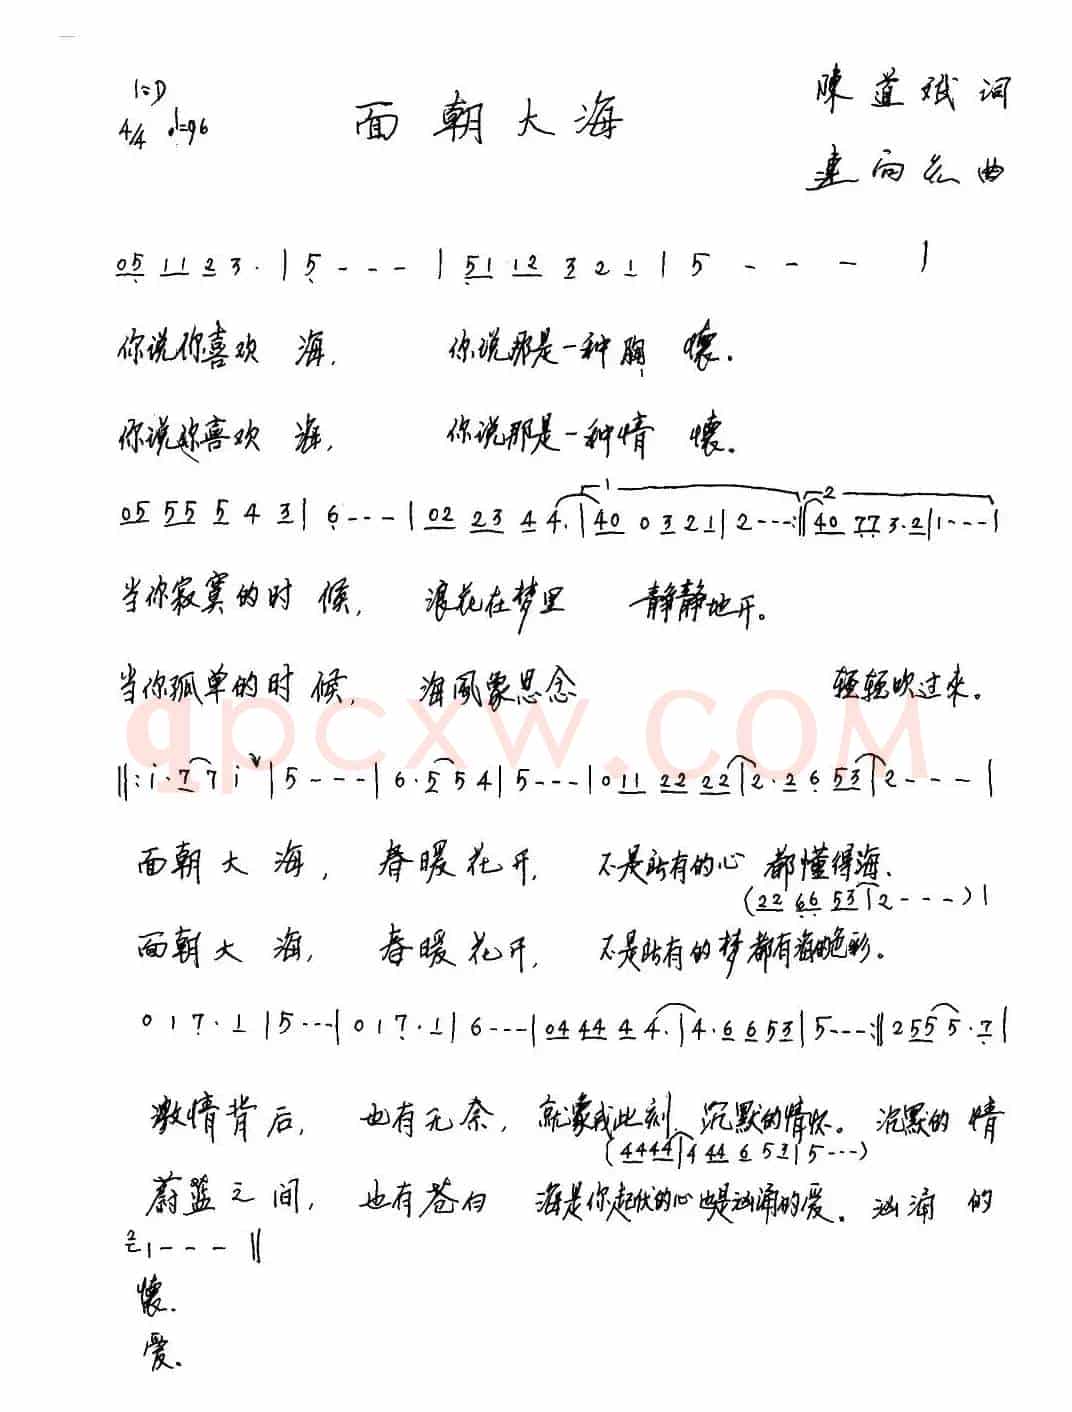 1=D
4/4 ♩=96
面朝大海
陳道斌 词
連向 曲
05 11 2 3 · | 5 - - - | 51 12 3 2 1 | 5 - - - |
你说你喜欢 海, 你说那是一种胸 懷.
你说你喜欢 海, 你说那是一种情 懷。
05 55 5 4 3 | 6 - - - | 02 23 4 4. | 40 0 3 2 1 | 2 - - - :‖ 40 77 3·2 | 1 - - - |
1 2
当你寂寞的时 候, 浪花在梦里 静静地开。
当你孤单的时 候, 海風象思念 轻轻吹过来。
qpcxw.COM
‖: i · 7 7 i v | 5 - - - | 6 · 5 5 4 | 5 - - - | 0 11 22 22 | 2 · 2 6 53 | 2 - - - |
面朝大海, 春暖花开, 不是所有的心 都懂得海.
(22 66 53 | 2 - - - ) |
面朝大海, 春暖花开, 不是所有的梦都有海的色彩。
0 1 7 · 1 | 5 - - - | 0 1 7 · 1 | 6 - - - | 04 44 4 4. | 4 · 6 6 53 | 5 - - - :‖ 2 55 5 · 7 |
激情背后, 也有无奈, 就象我此刻 沉默的情怀。 沉默的 情
(44 44 | 4 44 6 53 | 5 - - - )
蔚蓝之间, 也有苍白 海是你起伏的心也是汹涌的爱。 汹涌 的
2 1 - - - ‖
懷.
爱.